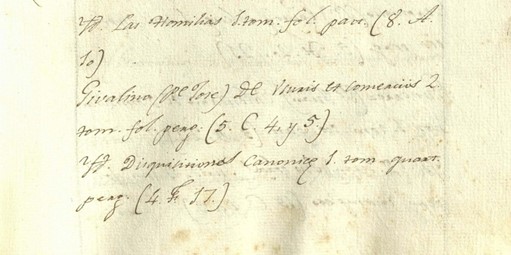 Yff. Las Homilias 1. tom. fol. pave. (8. A.
10)
Givalina (Pe. Jose) De Usuris et comerciis 2
tom. fol. perg. (5. C. 4. y. 5)
Yff. Disquisitiones Canonicę 1. tom quart.
perg. (4. F. 17)